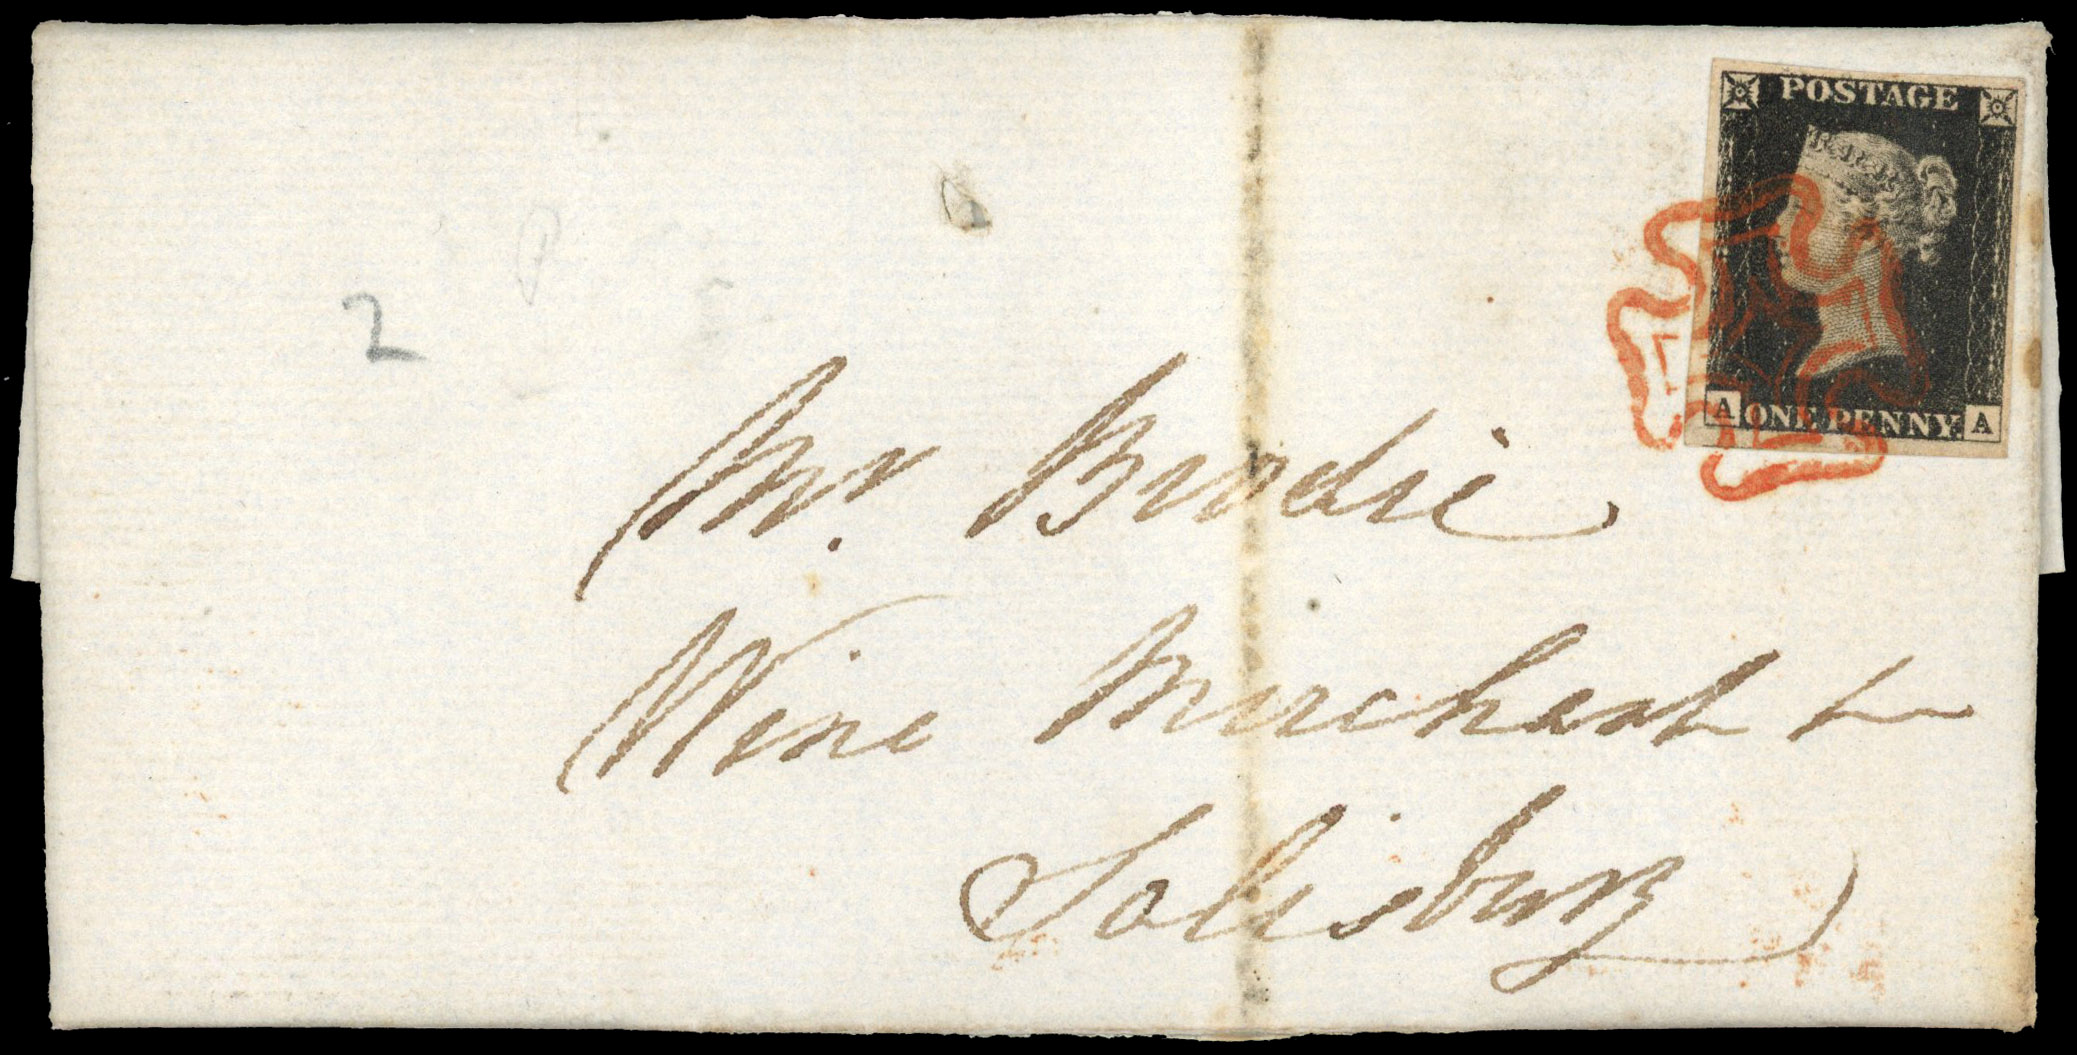 POSTAGE
A ONE PENNY. A
2
Mr. Brodie
Wine Merchant
Salisbury